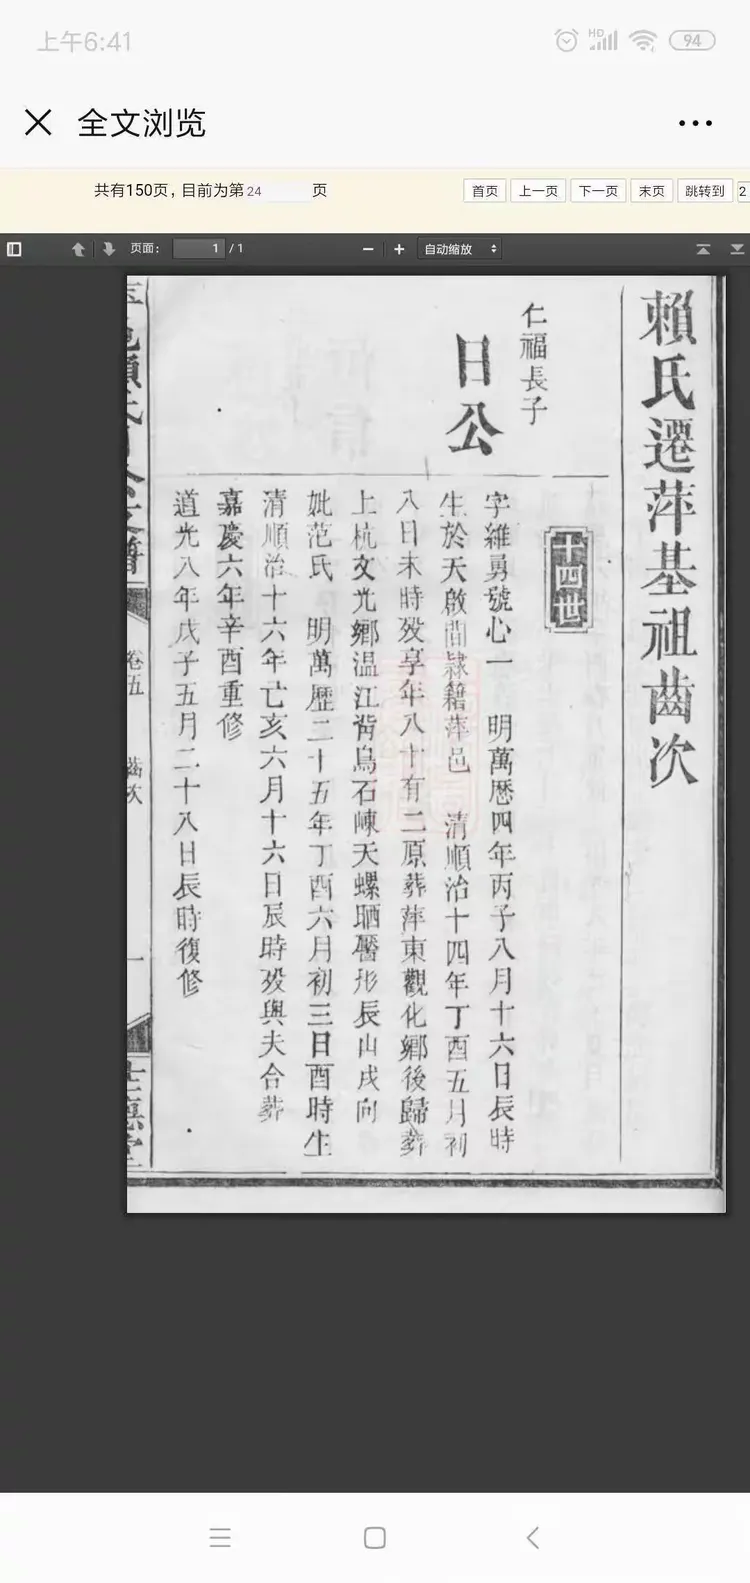 上午6:41
HD
94
全文浏览
共有150页，目前为第24 页
首页
上一页
下一页
末页
跳转到
2
页面：
1 / 1
自动缩放
賴氏遷萍基祖齒次
十四世
仁福長子
日公
字維勇號心一 明萬歷四年丙子八月十六日辰時
生於天啟間隸籍萍邑 清順治十四年丁酉五月初
八日未時歿享年八十有二原葬萍東觀化鄉後歸葬
上杭文光鄉溫江背烏石崠天螺晒靨形辰山戌向
妣范氏 明萬歷二十五年丁酉六月初三日酉時生
清順治十六年亡亥六月十六日辰時歿與夫合葬
嘉慶六年辛酉重修
道光八年戊子五月二十八日辰時復修
卷五
齒次
一